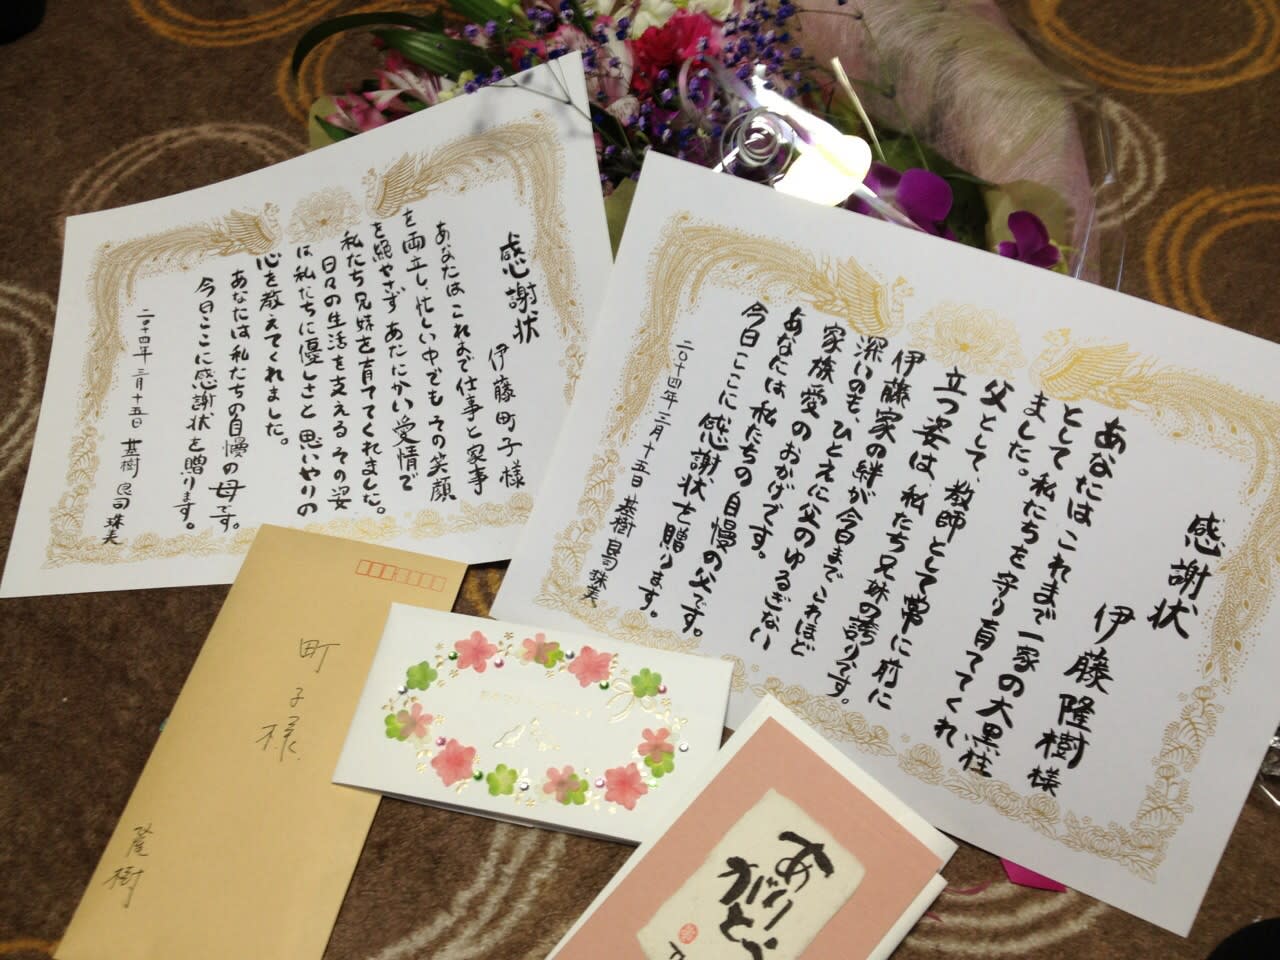 感謝状
伊藤町子様
あなたはこれまで仕事と家事
を両立し、忙しい中でもその笑顔
を絶やさず あたたかい愛情で
私たち兄妹を育ててくれました。
日々の生活を支えるその姿
は私たちに優しさと思いやりの
心を教えてくれました。
あなたは私たちの自慢の母です。
今日ここに感謝状を贈ります。
二〇一四年 三月十五日 基樹 良司 珠美
感謝状
伊藤隆樹様
あなたはこれまで一家の大黒柱
として私たちを守り育ててくれ
ました。
父として、教師として常に前に
立つ姿は私たち兄妹の誇りです。
伊藤家の絆が今日までこれほど
深いのも、ひとえに父のゆるぎない
家族愛のおかげです。
あなたは私たちの自慢の父です。
今日ここに感謝状を贈ります。
二〇十四年 三月十五日 基樹 良司 珠美
町子様
隆樹
あり
がとう